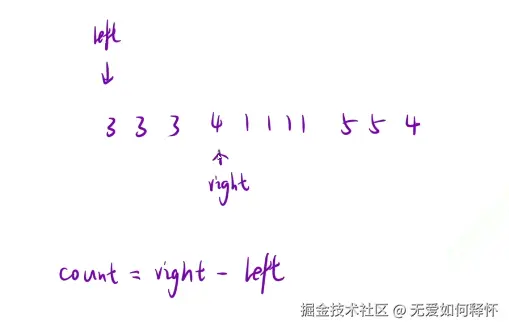 left
3 3 3 4 1 1 1 1 5 5 4
right
count = right - left
掘金技术社区 @ 无爱如何释怀